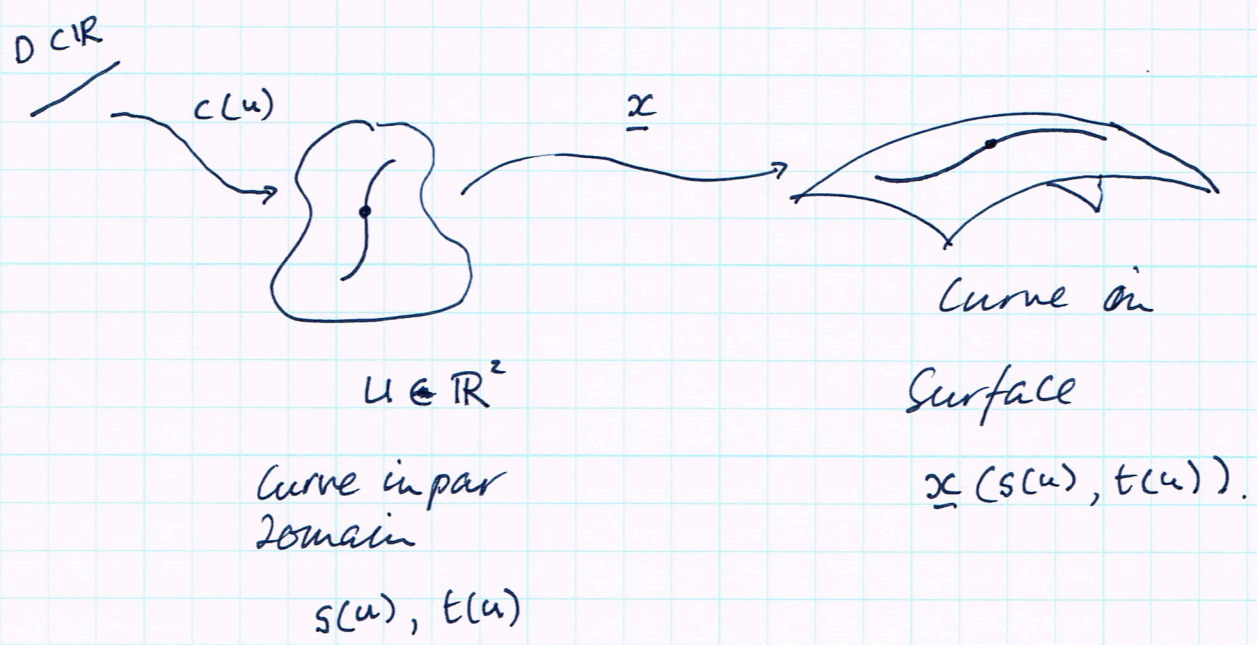 D ⊂ ℝ
c(u)
x
U ∈ ℝ²
Curve in par
domain
s(u), t(u)
Curve on
Surface
x (s(u), t(u)).